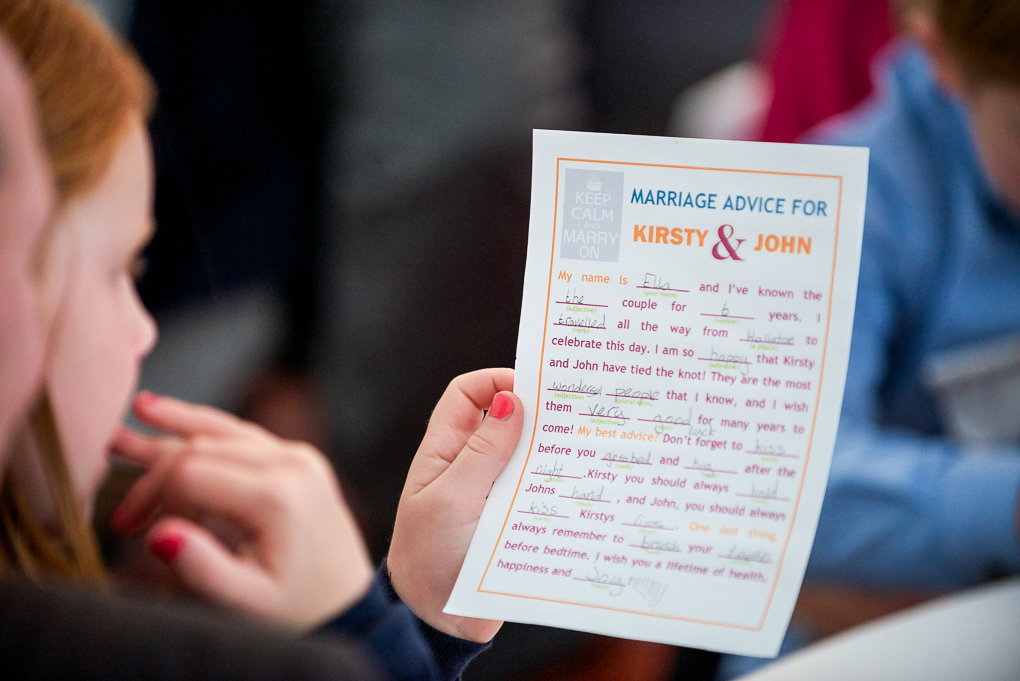 KEEP
CALM
AND
MARRY
ON
MARRIAGE ADVICE FOR
KIRSTY & JOHN
My name is Ella and I've known the
(your name)
the couple for 6 years. I
(adjective) (number)
travelled all the way from to
(verb) (a place)
celebrate this day. I am so happy that Kirsty
(adjective)
and John have tied the knot! They are the most
wonderful people that I know, and I wish
(adjective) (plural noun)
them very good luck for many years to
(adjective)
come! My best advice? Don't forget to kiss
before you and after the
night. Kirsty you should always hold
Johns hand, and John, you should always
kiss Kirstys lips. One last thing,
always remember to brush your teeth
before bedtime. I wish you a lifetime of health,
happiness and Joy!